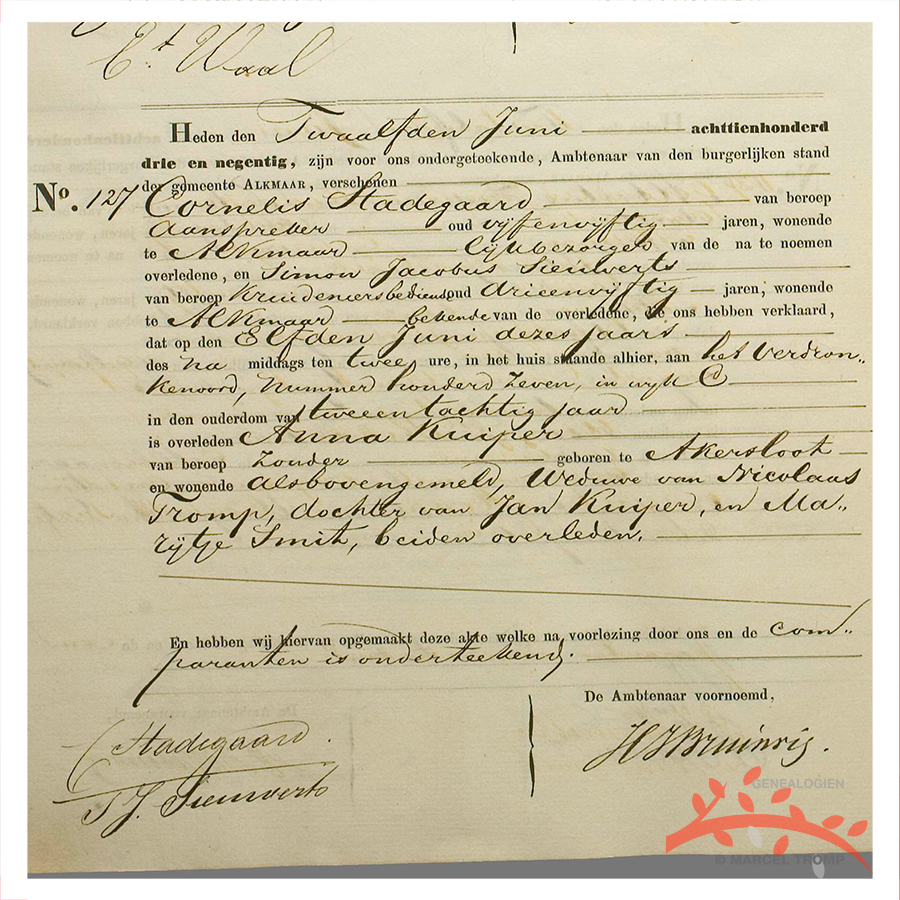 Ct. Waal
Heden den Twaalfden Juni achttienhonderd
drie en negentig, zijn voor ons ondergeteekende, Ambtenaar van den burgerlijken stand
der gemeente ALKMAAR, verschenen
No. 127 Cornelis Stadegaard van beroep
Aanspreker oud vijfenvijftig jaren, wonende
te Alkmaar Lijkbezorger van de na te noemen
overledene, en Simon Jacobus Sieuwerts
van beroep Kruideniersbediende oud drieenvijftig jaren, wonende
te Alkmaar bekende van de overledene, die ons hebben verklaard,
dat op den Elfden Juni dezes jaars
des na middags ten twee ure, in het huis staande alhier, aan het Verdron„
kenoord, nummer honderd zeven, in wijk C
in den ouderdom van tweeentachtig jaar
is overleden Anna Kuiper
van beroep zonder geboren te Akersloot
en wonende alsbovengemeld, Weduwe van Nicolaas
Tromp, dochter van Jan Kuiper, en Ma„
rijtje Smit, beiden overleden.
En hebben wij hiervan opgemaakt deze akte welke na voorlezing door ons en de com„
paranten is onderteekend.
De Ambtenaar voornoemd,
C Stadegaard.
HJBruinvis.
S. J. Sieuwerts
GENEALOGIEN
© MARCEL TROMP